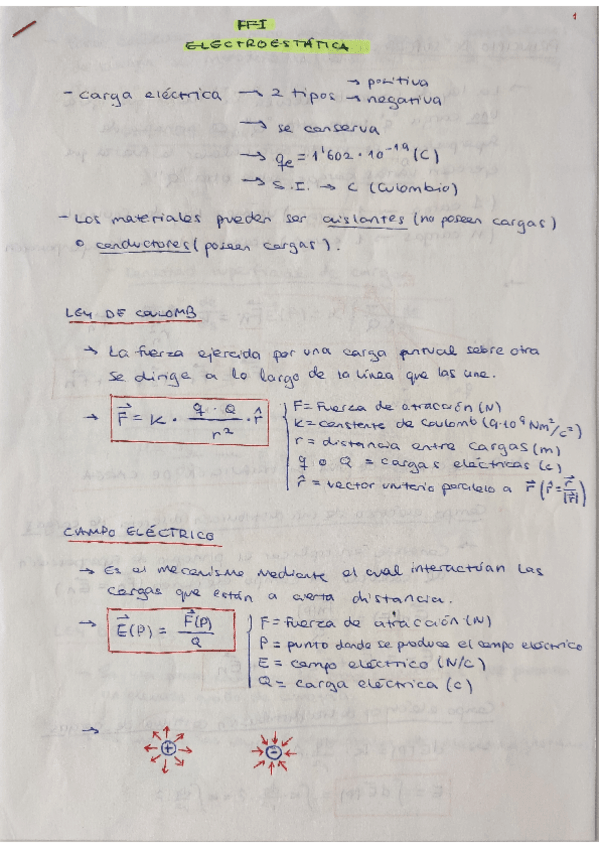 1
FF-I
ELECTROESTÁTICA
- Carga eléctrica → 2 tipos → positiva
→ negativa
→ se conserva
→ qe = 1'602 · 10⁻¹⁹ (C)
→ S.I. → C (Culombio)
- Los materiales pueden ser aislantes (no poseen cargas)
o conductores (poseen cargas).
LEY DE COULOMB
→ La fuerza ejercida por una carga puntual sobre otra
se dirige a lo largo de la línea que las une.
→ F⃗ = K · (q · Q / r²) · r̂
F = Fuerza de atracción (N)
K = constante de Coulomb (9·10⁹ Nm²/c²)
r = distancia entre cargas (m)
q o Q = cargas eléctricas (c)
r̂ = vector unitario paralelo a r⃗ (r̂ = r⃗/|r⃗|)
CAMPO ELÉCTRICO
→ Es el mecanismo mediante el cual interactúan las
cargas que están a cierta distancia.
→ E⃗(P) = F⃗(P) / Q
F = Fuerza de atracción (N)
P = punto donde se produce el campo eléctrico
E = campo eléctrico (N/c)
Q = carga eléctrica (c)
→ + −